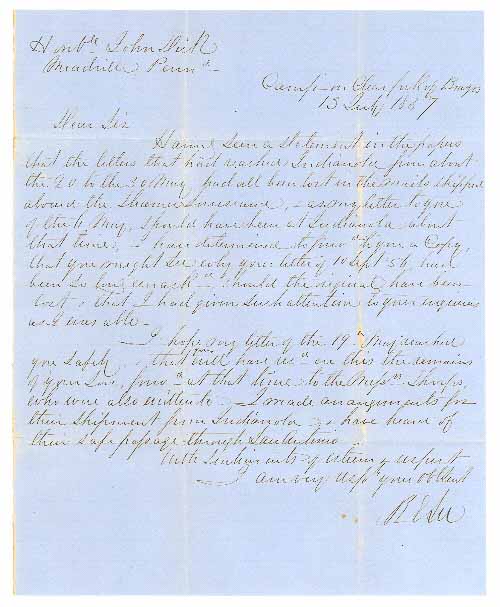 Honble John Dick
Meadville Penna
Camp on Clear fork of Brazos
13 July 1857
Dear Sir
Having seen a statement in the papers
that the letters that had reached Indianola from about
the 20 to the 30 May, had all been lost in the mails shipped
aboard the Steamer Louisiana, & as my letter to you
of the 4 May, should have been at Indianola about
that time, I have determined to forwd to you a Copy,
that you might see why your letter of 10 Sept 56 had
been so long unackd, should the original have been
lost, & that I had given such attention to your inquiries
as I was able.
I hope my letter of the 19th May reached
you safely. that you will have recd ere this the remains
of your Son, forwd at that time to the Messrs
who were also written to. I made arrangements for
their shipment from Indianola & have heard of
their safe passage through San Antonio.
With sentiments of esteem & respect
I am very respy your obt Servt
R E Lee